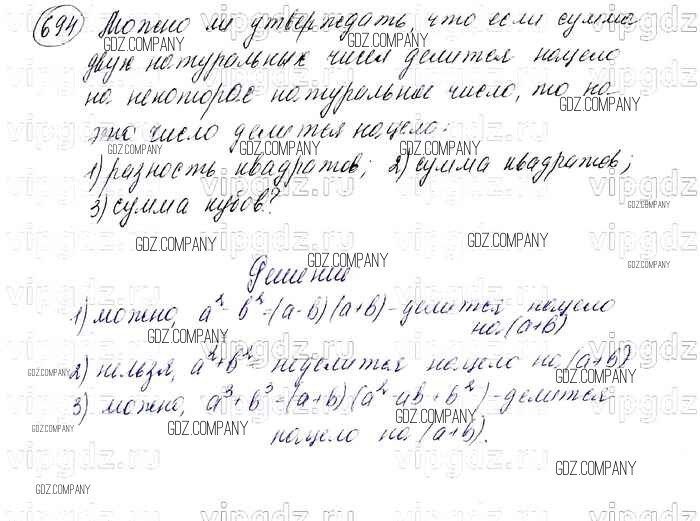 694 Можно ли утверждать, что если сумма
двух натуральных чисел делится нацело
на некоторое натуральное число, то на
это число делится нацело:
1) разность квадратов; 2) сумма квадратов;
3) сумма кубов?
Решение
1) можно, a² - b² = (a - b)(a + b) - делится нацело
на (a + b)
2) нельзя, a² + b² - не делится нацело на (a + b)
3) можно, a³ + b³ = (a + b)(a² - ab + b²) - делится
нацело на (a + b).
GDZ.COMPANY
vipgdz.ru